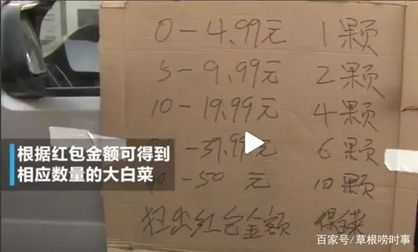 0-4.99元 1颗
5-9.99元 2颗
10-19.99元 4颗
-39.99元 6颗
-50元 10颗
红包金额 保白菜
根据红包金额可得到
相应数量的大白菜
百家号/草根唠时事